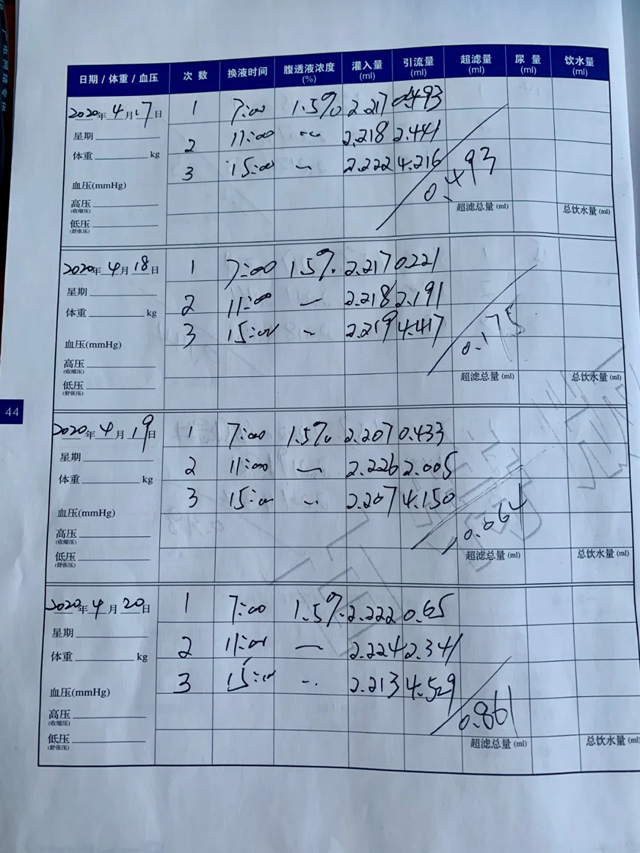 日期/体重/血压 次 数 换液时间 腹透液浓度(%) 灌入量(ml) 引流量(ml) 超滤量(ml) 尿 量(ml) 饮水量(ml)
2020年4月17日 1 7:00 1.5% 2.217 0.493
星期 2 11:00 〃 2.218 2.441
体重 kg 3 15:00 〃 2.222 4.216
血压(mmHg) 0.493
高压(收缩压) 超滤总量(ml) 总饮水量(ml)
低压(舒张压)
2020年4月18日 1 7:00 1.5% 2.217 0.221
星期 2 11:00 〃 2.218 2.191
体重 kg 3 15:00 〃 2.219 4.417
血压(mmHg) 0.175
高压(收缩压) 超滤总量(ml) 总饮水量(ml)
低压(舒张压)
44
2020年4月19日 1 7:00 1.5% 2.207 0.433
星期 2 11:00 〃 2.226 2.005
体重 kg 3 15:00 〃 2.207 4.150
血压(mmHg) 0.064
高压(收缩压) 超滤总量(ml) 总饮水量(ml)
低压(舒张压)
2020年4月20日 1 7:00 1.5% 2.222 0.65
星期 2 11:00 〃 2.224 2.341
体重 kg 3 15:00 〃 2.213 4.529
血压(mmHg) 0.861
高压(收缩压)
低压(舒张压) 超滤总量(ml) 总饮水量(ml)